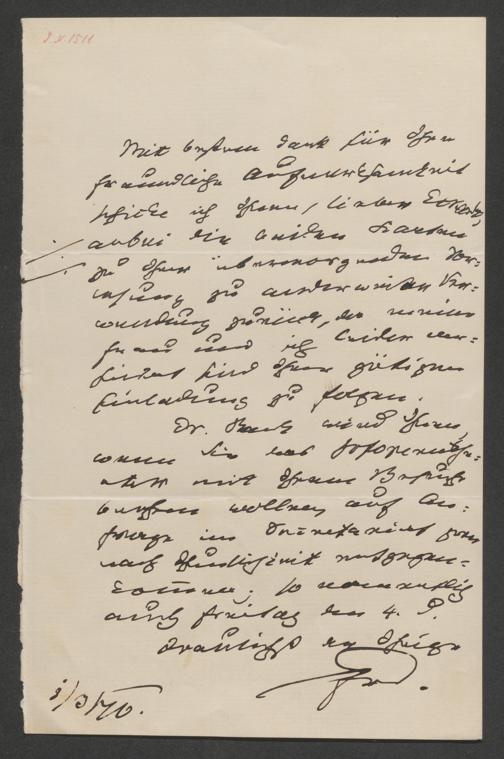 Mit bestem Dank für Ihre
freundliche Aufmerksamkeit
schicke ich Ihnen, lieber
anbei die beiden Karten
zu Ihrer übermorgenden Vor-
lesung zu anderweiter Ver-
wendung zurück, da meine
Frau und ich leider ver-
hindert sind Ihrer gütigen
Einladung zu folgen.
Dr. wird Ihnen,
wenn Sie das
mit Ihrem Besuche
beehren wollen, auf An-
frage im Secretariat gern
nach Thunlichkeit entgegen-
kommen; so namentlich
auch Freitag den 4. d.
Traulichst der Ihrige